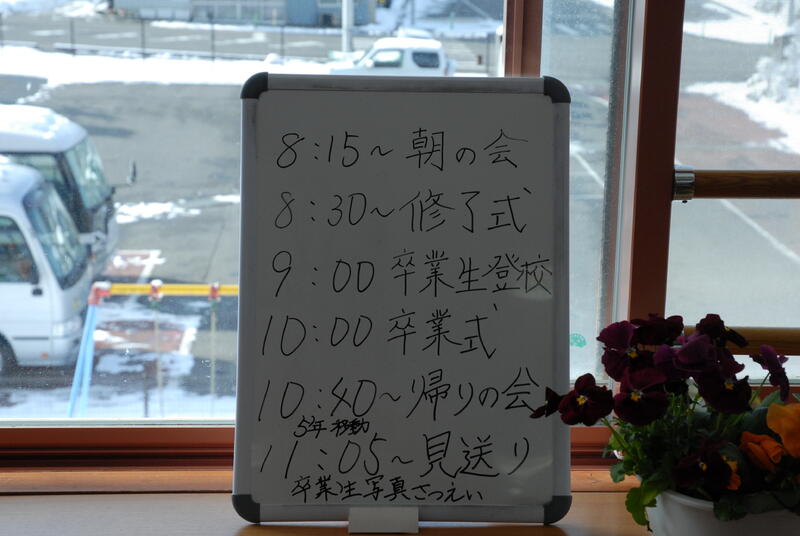 8:15～朝の会
8:30～修了式
9:00 卒業生登校
10:00 卒業式
10:40～帰りの会
5年移動
11:05～見送り
卒業生写真さつえい